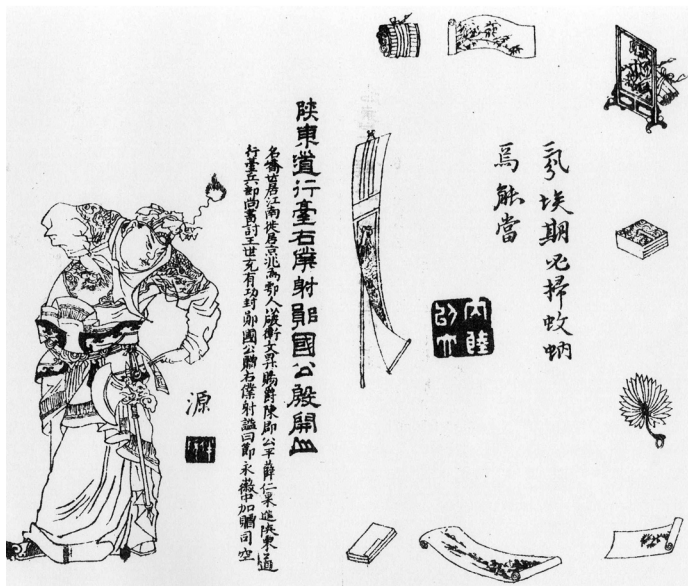 氛埃期必掃蚊蚋
焉能當
陝東道行臺右僕射鄖國公殷開山
名嶠世居江南徙居京兆為鄠人破衛文昇賜爵陳郡公平薛仁果進陝東道
行臺兵部尚書討王世充有功封鄖國公贈右僕射諡曰節永徽中加贈司空
源